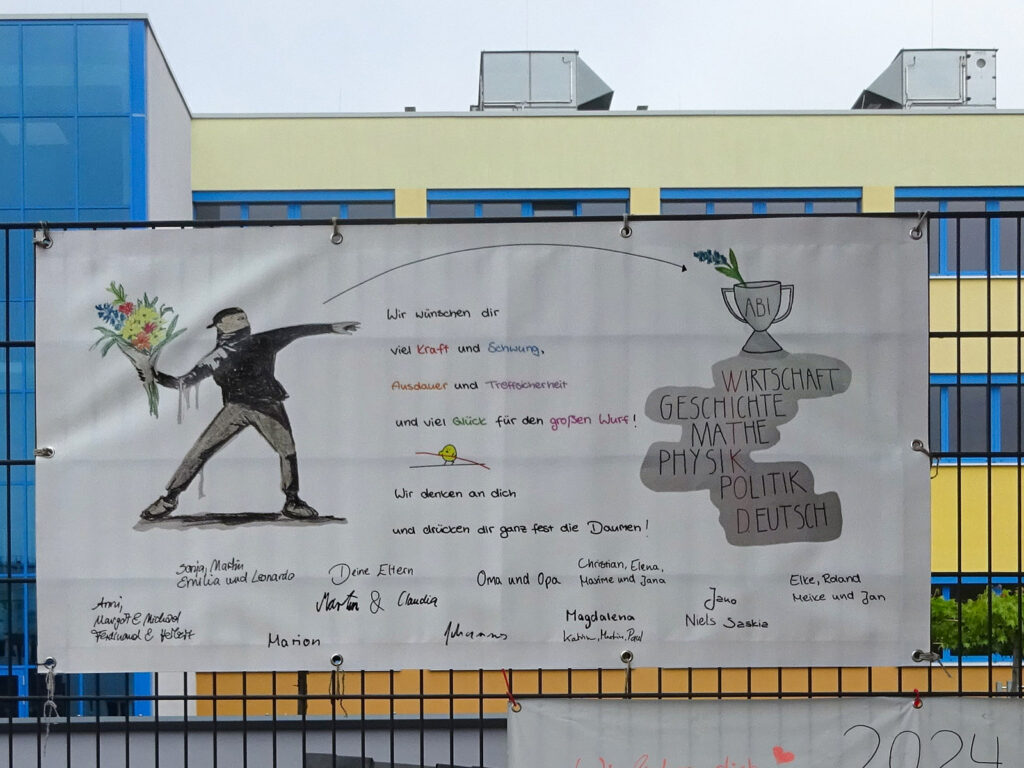 Wir wünschen dir
viel Kraft und Schwung,
Ausdauer und Treffsicherheit
und viel Glück für den großen Wurf!
Wir denken an dich
und drücken dir ganz fest die Daumen!
ABI
WIRTSCHAFT
GESCHICHTE
MATHE
PHYSIK
POLITIK
DEUTSCH
Sonja, Martin
Emilia und Leonardo
Deine Eltern
Martin & Claudia
Oma und Opa
Christian, Elena,
Maxime und Jana
Elke, Roland
Meike und Jan
Anni,
Margot & Michael
Ferdinand &
Marion
Johannes
Magdalena
Katrin, Martin,
Jano
Niels Saskia
2024